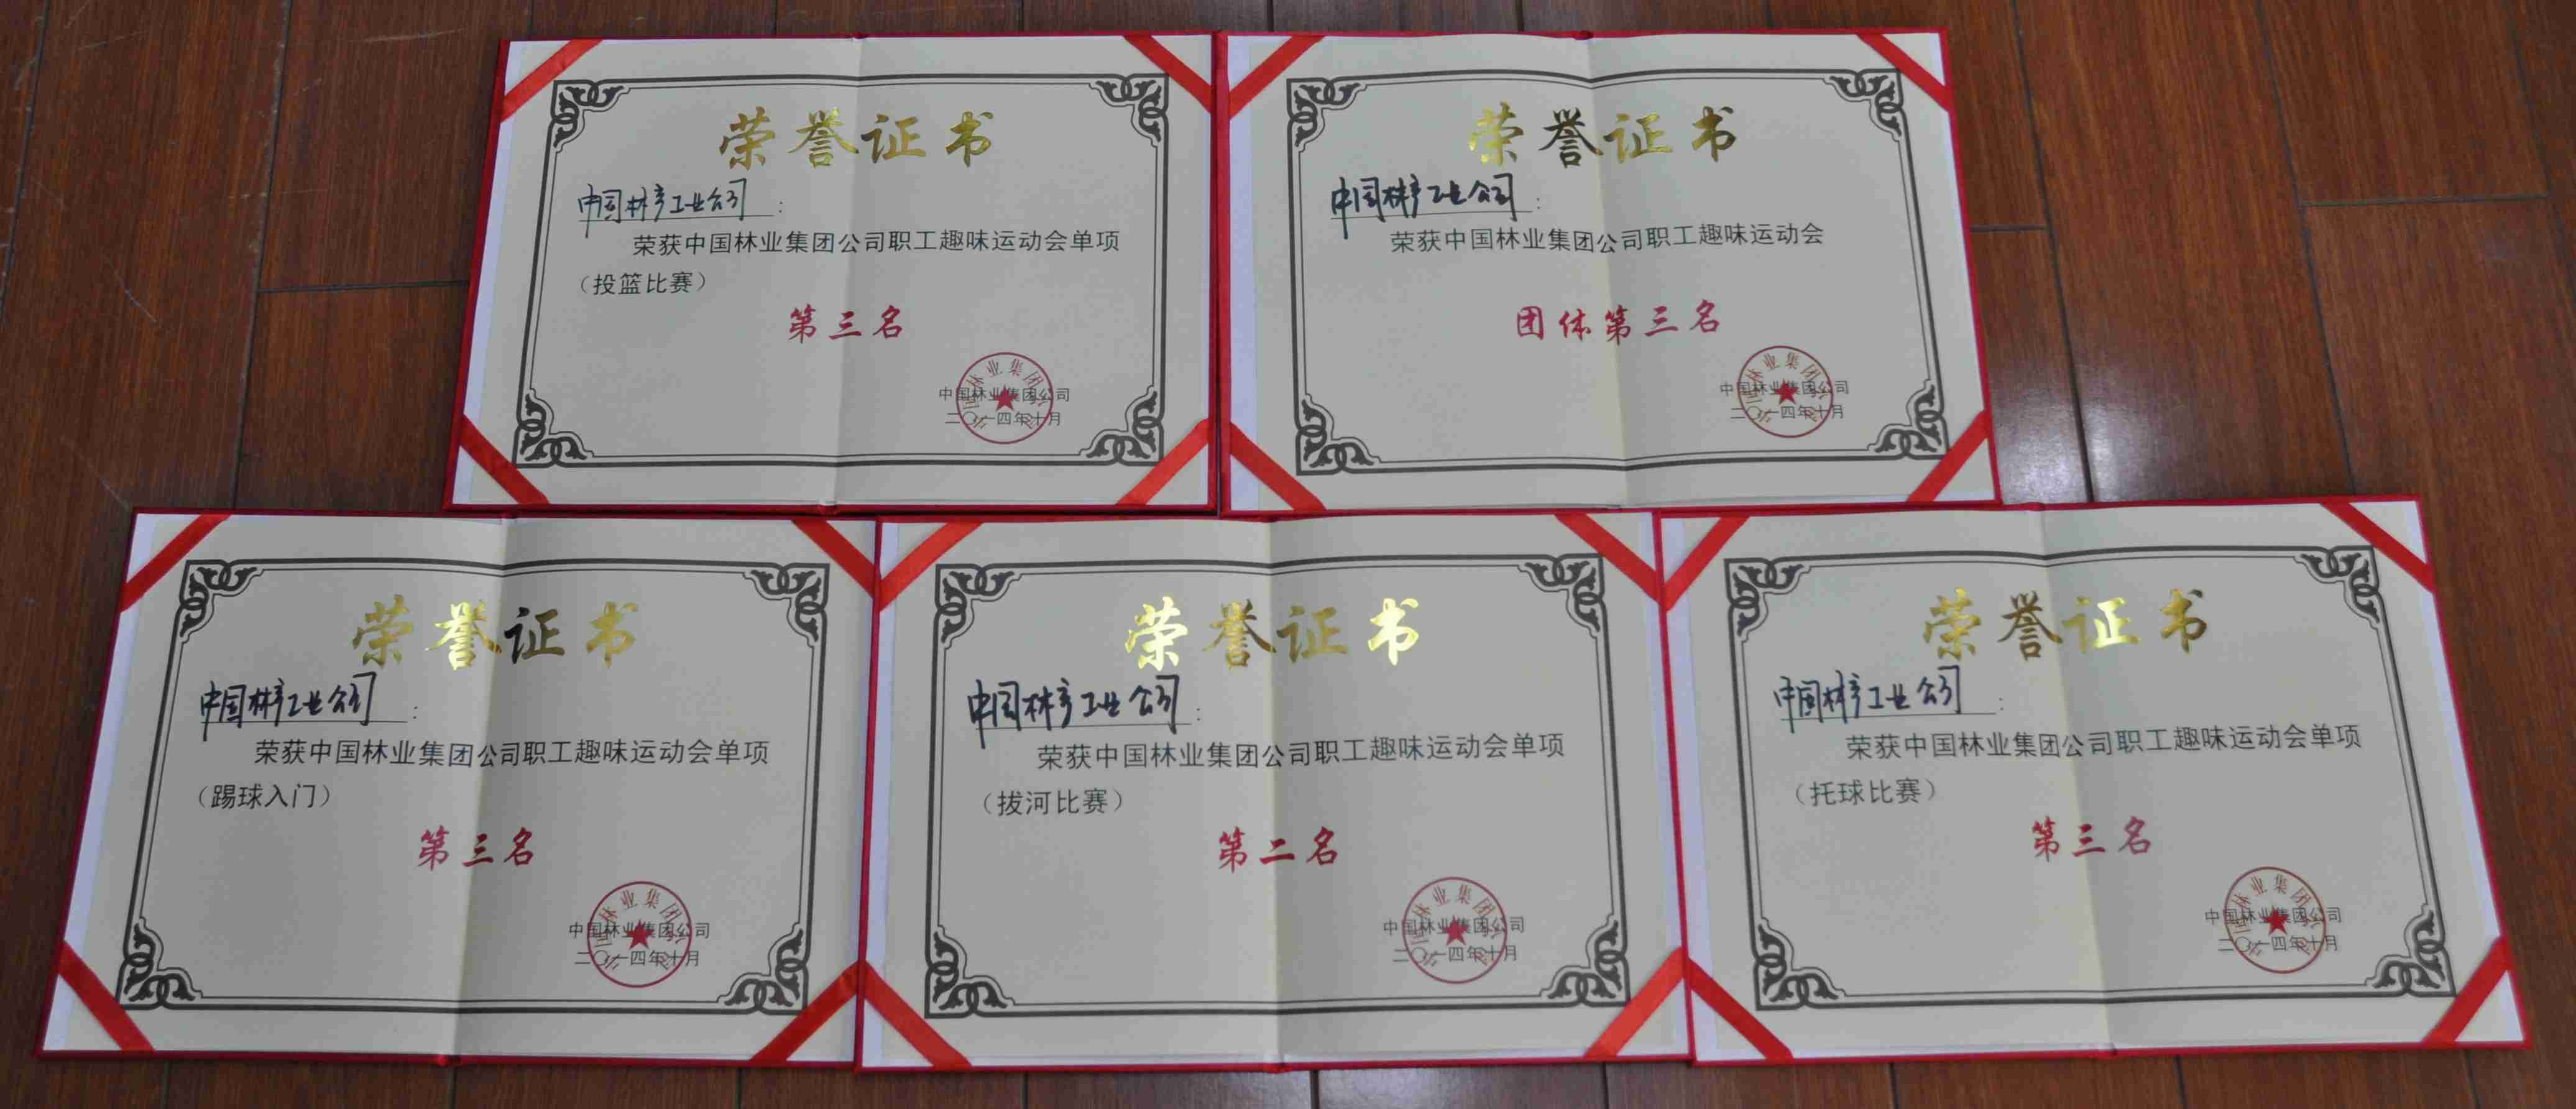 荣誉证书
中国林产工业公司：
荣获中国林业集团公司职工趣味运动会单项
（投篮比赛）
第三名
中国林业集团公司
二〇一四年十月
荣誉证书
中国林产工业公司：
荣获中国林业集团公司职工趣味运动会
团体第三名
中国林业集团公司
二〇一四年十月
荣誉证书
中国林产工业公司：
荣获中国林业集团公司职工趣味运动会单项
（踢球入门）
第三名
中国林业集团公司
二〇一四年十月
荣誉证书
中国林产工业公司：
荣获中国林业集团公司职工趣味运动会单项
（拔河比赛）
第二名
中国林业集团公司
二〇一四年十月
荣誉证书
中国林产工业公司：
荣获中国林业集团公司职工趣味运动会单项
（托球比赛）
第三名
中国林业集团公司
二〇一四年十月